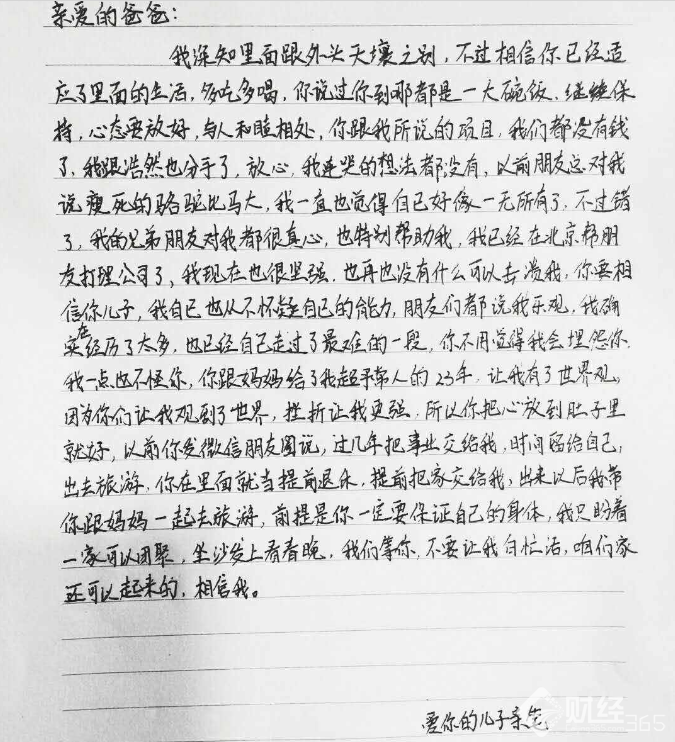 亲爱的爸爸：
我深知里面跟外头天壤之别，不过相信你已经适
应了里面的生活，多吃多喝，你说过你到哪都是一大碗饭，继续保
持，心态要放好，与人和睦相处，你跟我所说的项目，我们都没有钱
了，我跟浩然也分手了，放心，我连哭的想法都没有，以前朋友总对我
说瘦死的骆驼比马大，我一直也觉得自己好像一无所有了，不过错
了，我的兄弟朋友对我都很真心，也特别帮助我，我已经在北京帮朋
友打理公司了，我现在也很坚强，也再也没有什么可以击溃我，你要相
信你儿子，我自己也从不怀疑自己的能力，朋友们都说我乐观，我确
实在经历了太多，也已经自己走过了最难的一段，你不用觉得我会埋怨你，
我一点也不怪你，你跟妈妈给了我超乎常人的23年，让我有了世界观，
因为你们让我观到了世界，挫折让我更强，所以你把心放到肚子里
就好，以前你发微信朋友圈说，过几年把事业交给我，时间留给自己，
出去旅游，你在里面就当提前退休，提前把家交给我，出来以后我带
你跟妈妈一起去旅游，前提是你一定要保证自己的身体，我只盼着
一家可以团聚，坐沙发上看春晚，我们等你，不要让我白忙活，咱们家
还可以起来的，相信我。
爱你的儿子
财经365